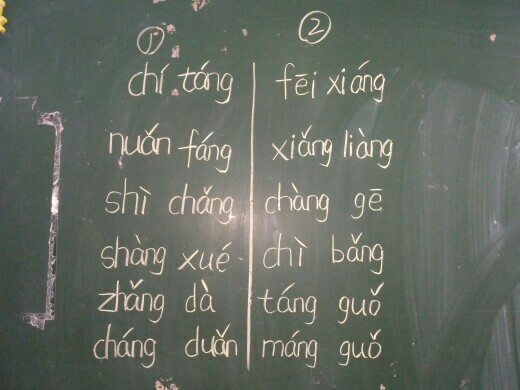 ①
chí táng
nuǎn fáng
shì chǎng
shàng xué
zhǎng dà
cháng duǎn
②
fēi xiáng
xiǎng liàng
chàng gē
chì bǎng
táng guǒ
máng guǒ